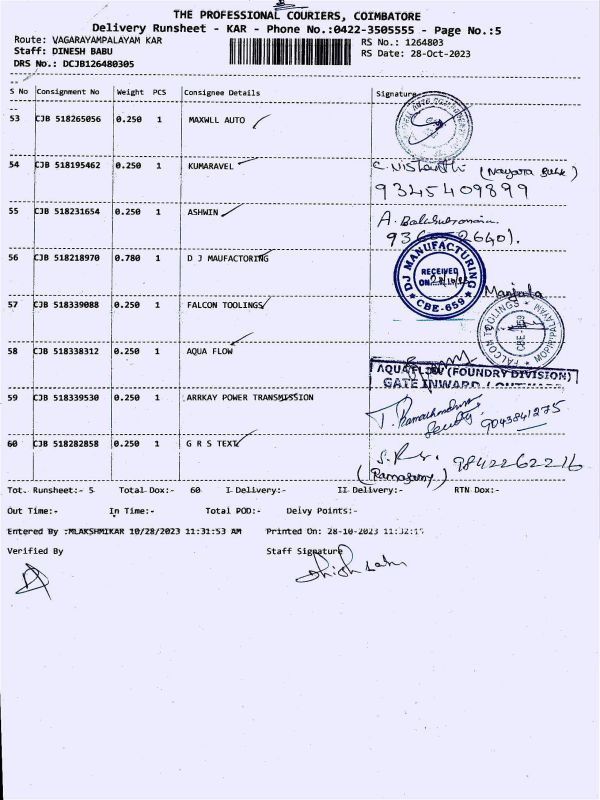 THE PROFESSIONAL COURIERS, COIMBATORE
Delivery Runsheet - KAR - Phone No.:0422-3505555 - Page No.:5
Route: VAGARAYAMPALAYAM KAR
RS No.: 1264803
Staff: DINESH BABU
RS Date: 28-Oct-2023
DRS No.: DCJB126480305
S No Consignment No Weight PCS Consignee Details Signature
53 CJB 518265056 0.250 1 MAXWLL AUTO
54 CJB 518195462 0.250 1 KUMARAVEL
(Nayara Bulk)
9345409899
55 CJB 518231654 0.250 1 ASHWIN
A. Balasubramani
56 CJB 518218970 0.780 1 D J MAUFACTORING
DJ MANUFACTURING
RECEIVED
ON
CBE-659
57 CJB 518339088 0.250 1 FALCON TOOLINGS
FALCON TOOLINGS
MOPPIRIPALAYAM
CBE-659
58 CJB 518338312 0.250 1 AQUA FLOW
AQUAFLOW (FOUNDRY DIVISION)
GATE INWARD / OUTWARD
59 CJB 518339530 0.250 1 ARRKAY POWER TRANSMISSION
T. Ramachandran
9043841275
60 CJB 518282858 0.250 1 G R S TEXT
9842262216
(Ramasamy)
Tot. Runsheet:- 5 Total Dox:- 60 I Delivery:- II Delivery:- RTN Dox:-
Out Time:- In Time:- Total POD:- Deivy Points:-
Entered By :MLAKSHMIKAR 10/28/2023 11:31:53 AM Printed On: 28-10-2023
Verified By Staff Signature